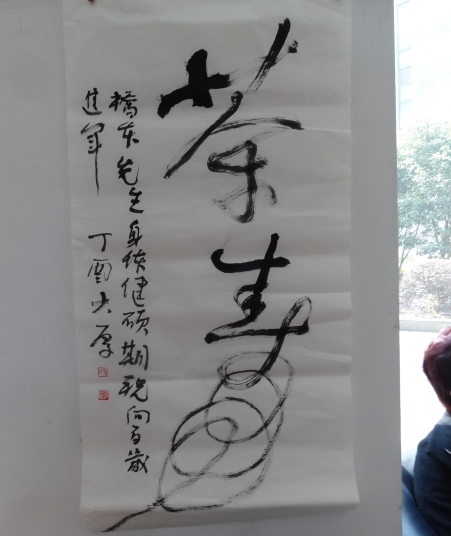 茶寿
橋东先生身体健硕期祝向百歲
進军
丁酉大厚